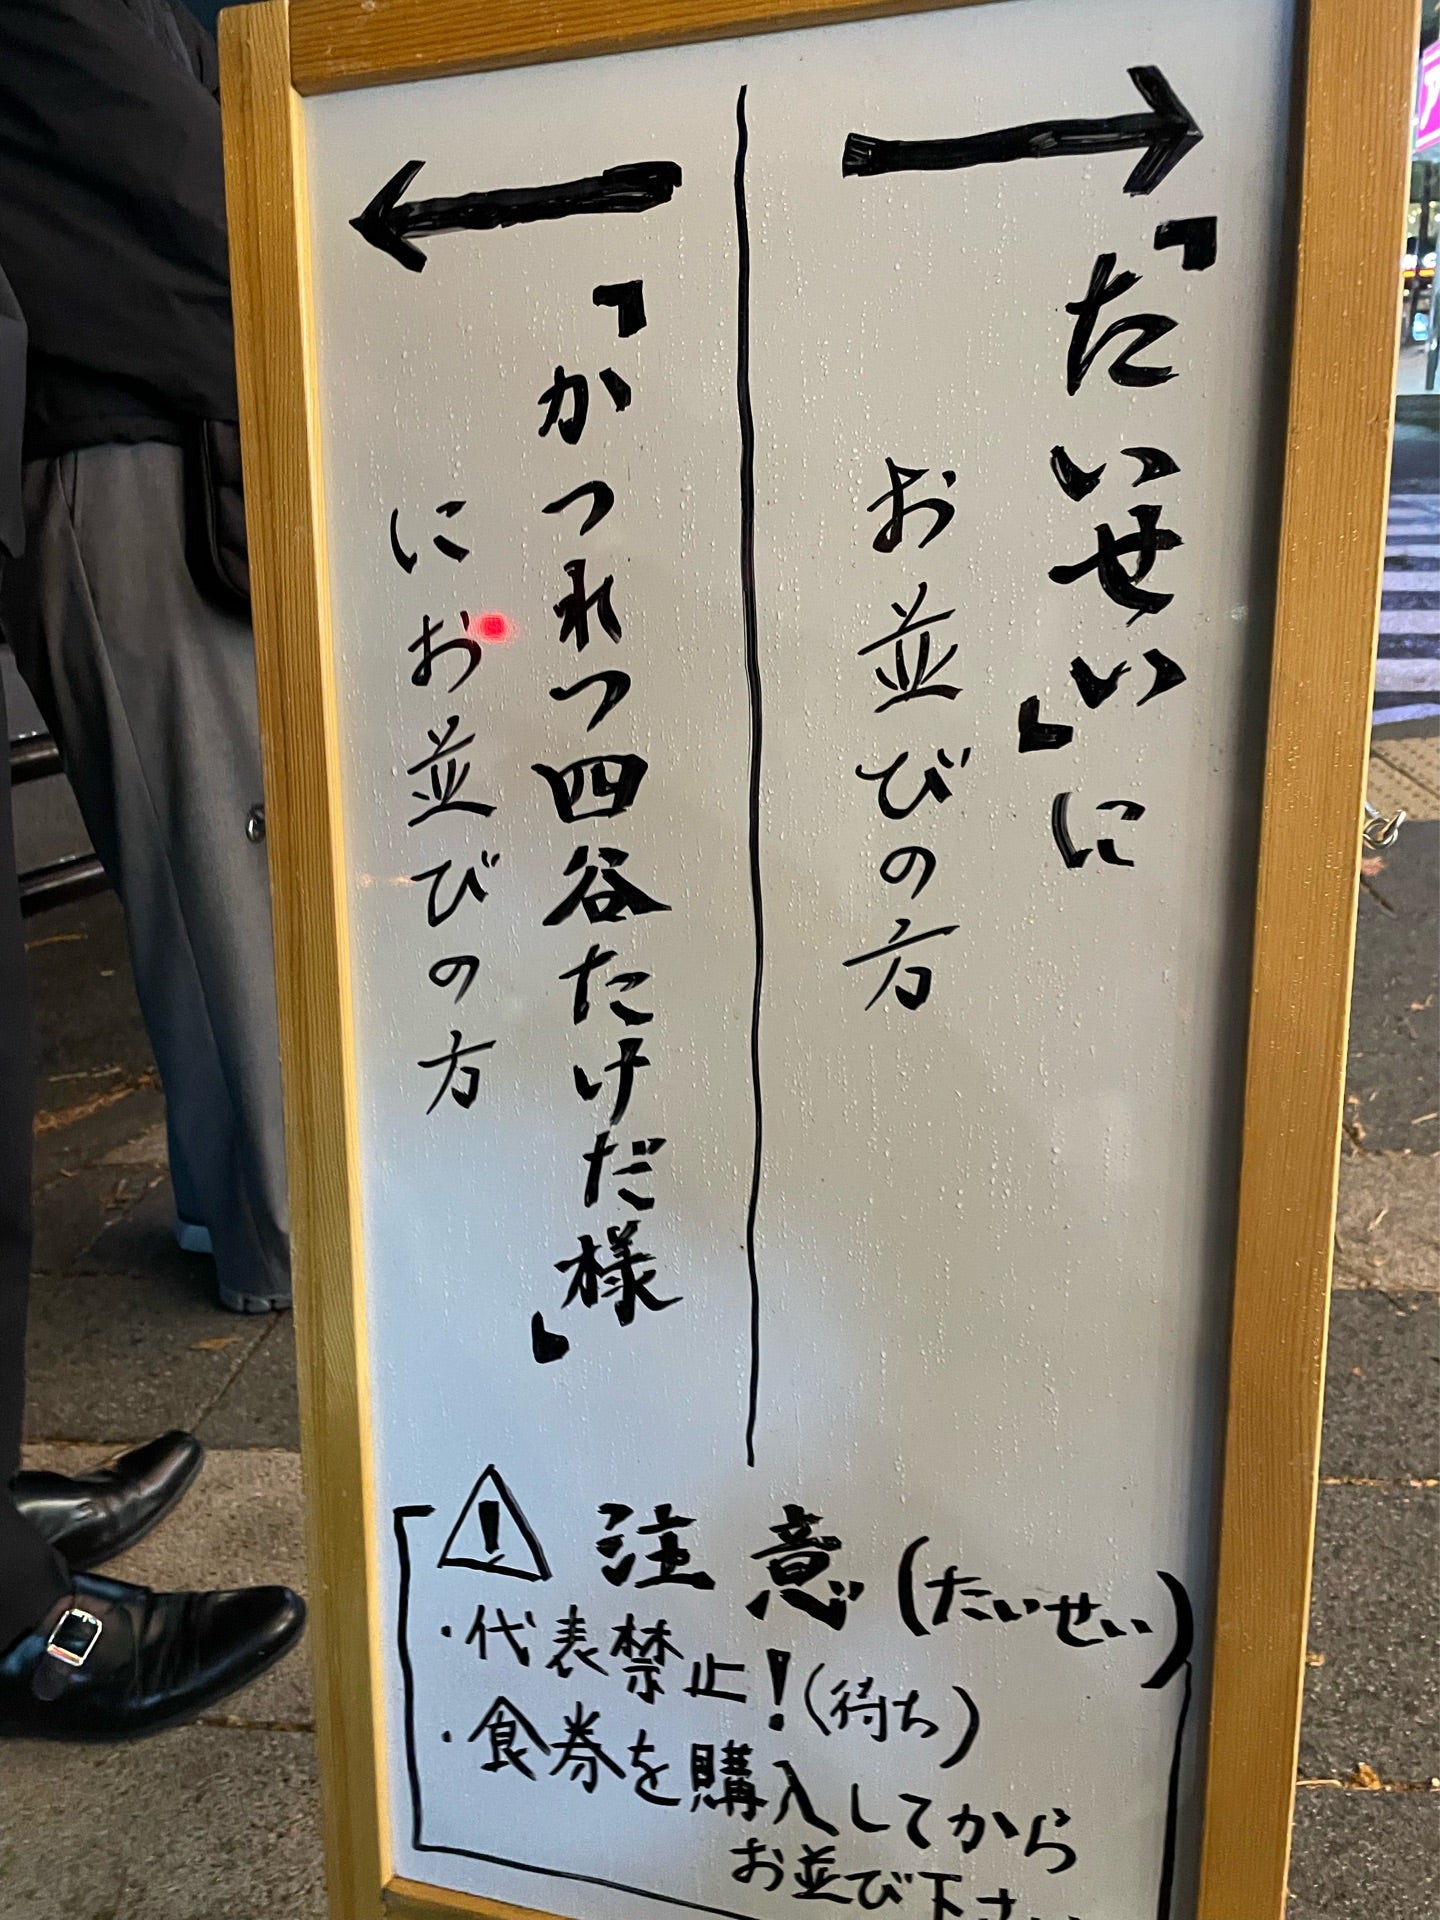 「たいせい」に
お並びの方
「かつれつ四谷たけだ様」
にお並びの方
注意(たいせい)
・代表禁止!(待ち)
・食券を購入してから
お並び下さ